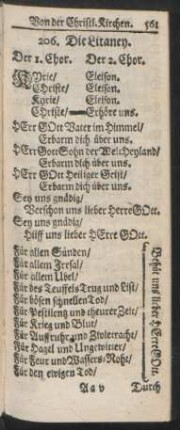 Von der Christl. Kirchen. 561
206. Die Litaney.
Der 1. Chor. Der 2. Chor.
KYrie/ Eleison.
Christe/ Eleison.
Kyrie/ Eleison.
Christe/ Erhöre uns.
HErr GOtt Vater im Himmel/
Erbarm dich über uns.
HErr Gott Sohn der Welt Heyland/
Erbarm dich über uns.
HErr GOtt Heiliger Geist/
Erbarm dich über uns.
Sey uns gnädig/
Verschon uns lieber Herre GOtt.
Sey uns gnädig/
Hilff uns lieber HErre GOtt.
Für allen Sünden/
Für allem Irrsal/
Für allem Übel/
Für des Teuffels Trug und List/
Für bösen schnellen Tod/
Für Pestilentz und theurer Zeit/
Für Krieg und Blut/
Für Auffruhr und Zwietracht/
Für Hagel und Ungewitter/
Für Feur und Wassers-Noht/
Für dem ewigen Tod/
Behüt uns lieber HErre GOtt.
A a v Durch